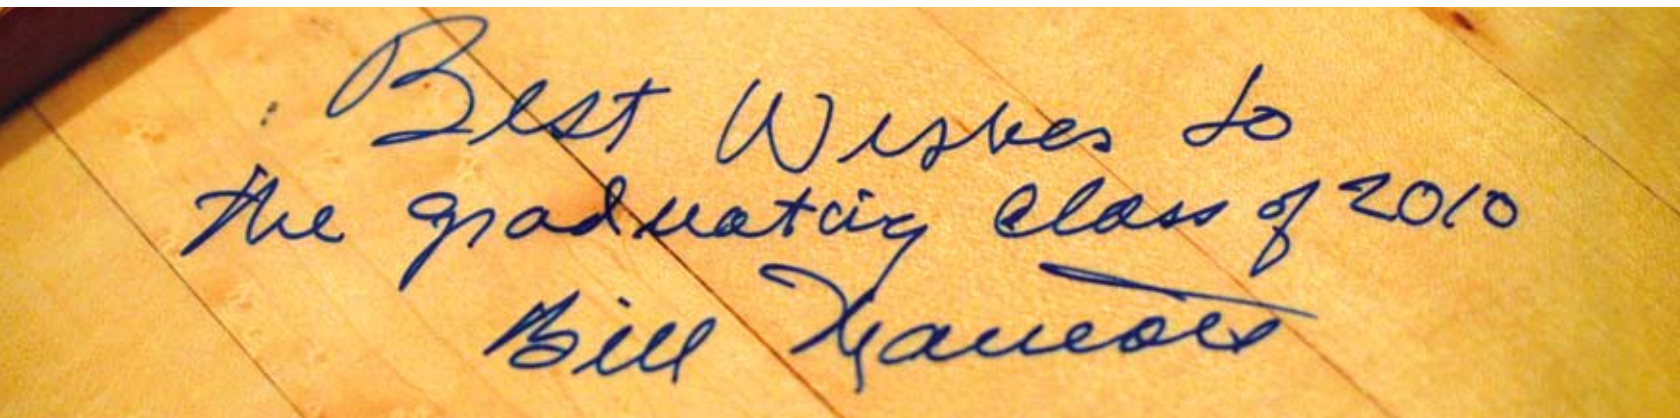 Best Wishes to
the graduating class of 2010
Bill